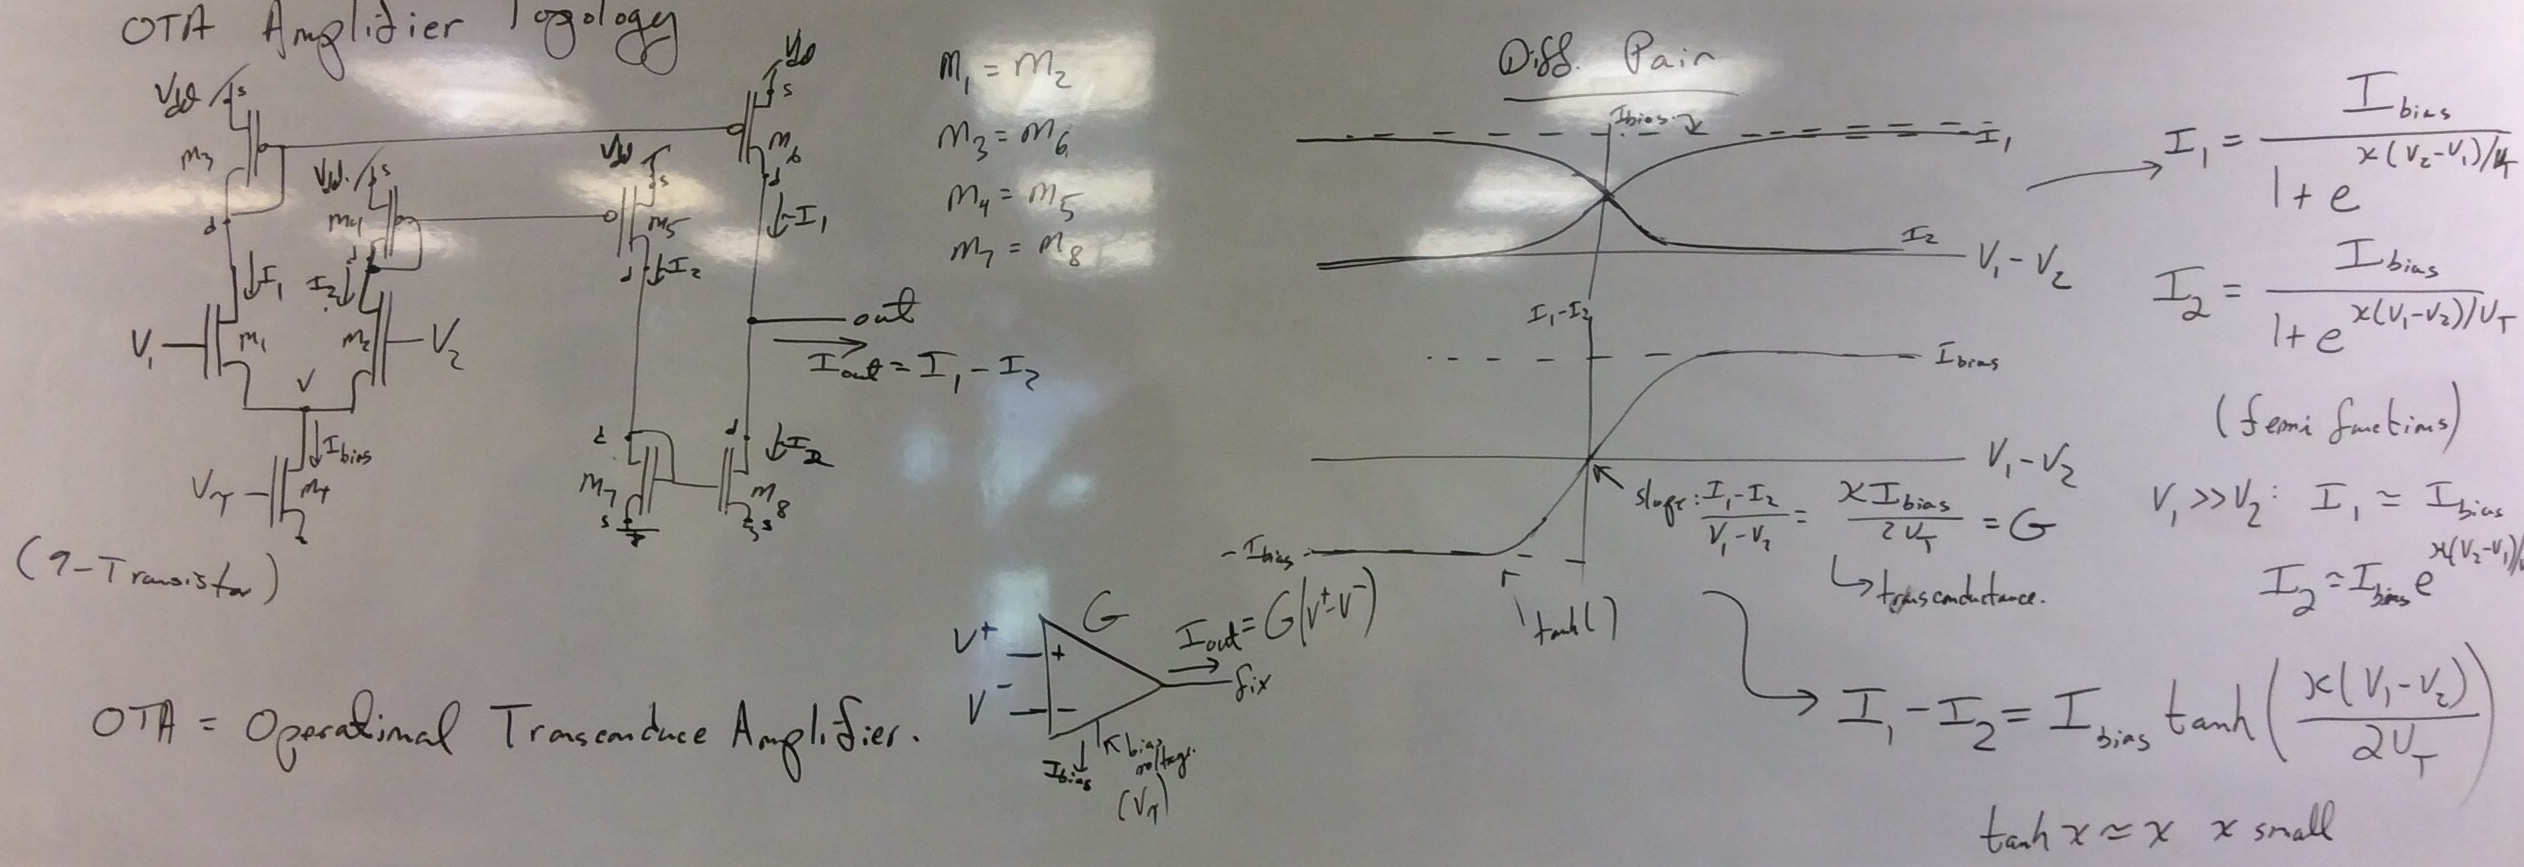 OTA Amplifier Topology
Vdd
s
M3
d
Vdd
s
M4
d
Vdd
s
M5
d
Vdd
s
M6
d
↓I1
I2↓
↓I2
↓I1
V1
M1
M2
V2
V
↓Ibias
Vτ
Mτ
out
Iout = I1 - I2
d
M7
s
d
↓I2
M8
s
(9-Transistor)
M1 = M2
M3 = M6
M4 = M5
M7 = M8
OTA = Operational Transconduce Amplifier.
V+
V-
+
-
G
Iout = G(V+-V-)
fix
Ibias
bias voltage
(Vτ)
Diff. Pair
Ibias
I1
I2
V1 - V2
I1-I2
Ibias
V1 - V2
-Ibias
tanh( )
slope: (I1-I2)/(V1-V2) = κIbias/2UT = G
↳ transconductance.
I1 = Ibias / (1 + e^κ(V2-V1)/UT)
I2 = Ibias / (1 + e^κ(V1-V2)/UT)
(fermi functions)
V1 >> V2: I1 ≃ Ibias
I2 ≃ Ibias e^κ(V2-V1)/
I1 - I2 = Ibias tanh(κ(V1-V2)/2UT)
tanh x ≃ x x small